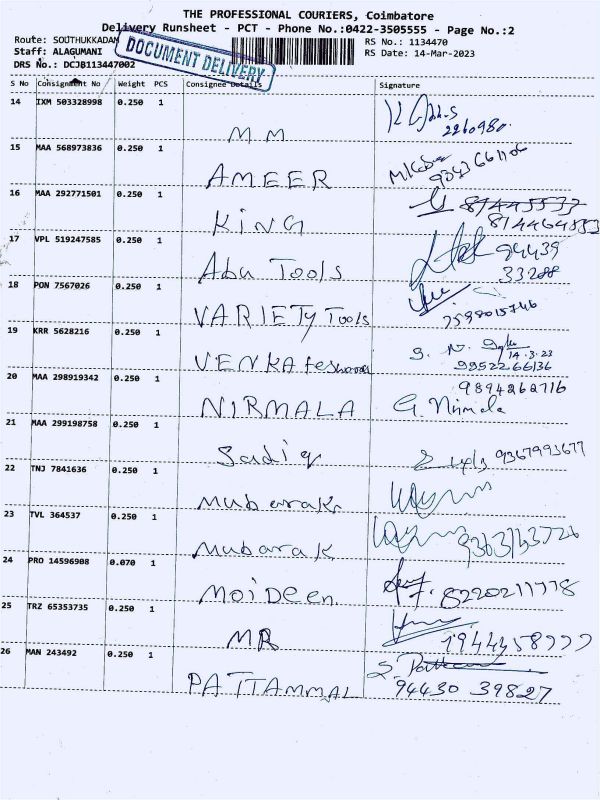 THE PROFESSIONAL COURIERS, Coimbatore
Delivery Runsheet - PCT - Phone No.:0422-3505555 - Page No.:2
Route: SOUTHUKKADAM
RS No.: 1134470
Staff: ALAGUMANI
RS Date: 14-Mar-2023
DRS No.: DCJB113447002
DOCUMENT DELIVERY
S No Consignment No Weight PCS Consignee Details Signature
14 IXM 503328998 0.250 1
2260980
MM
15 MAA 568973836 0.250 1
AMEER
16 MAA 292771501 0.250 1
KING
17 VPL 519247585 0.250 1 94439
Abu Tools 33288
18 PON 7567026 0.250 1
VARIETY Tools 7598015746
19 KRR 5628216 0.250 1
14.3.23
VENKATeshwara 9952266136
20 MAA 298919342 0.250 1 9894262716
NIRMALA G. Nirmala
21 MAA 299198758 0.250 1
Sadiq 9367993677
22 TNJ 7841636 0.250 1
Mubarak
23 TVL 364537 0.250 1
Mubarak 9363143726
24 PRO 14596908 0.070 1
Moideen 8220211778
25 TRZ 65353735 0.250 1
MR
26 MAN 243492 0.250 1
PATTAMMAL 94430 39827